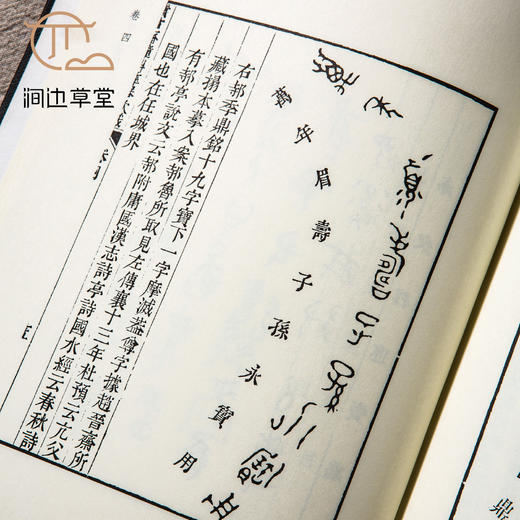 涧边草堂
萬年眉壽子孫永寶用
右邿鼎銘十九字寶下一字摩滅葢尊字據趙晉齋所
藏搨本摹入案邿魯所取見左傳襄十三年杜預云亢父
有邿亭說文云邿附庸國漢志詩亭詩國水經云春秋詩
國也在任城界
卷四